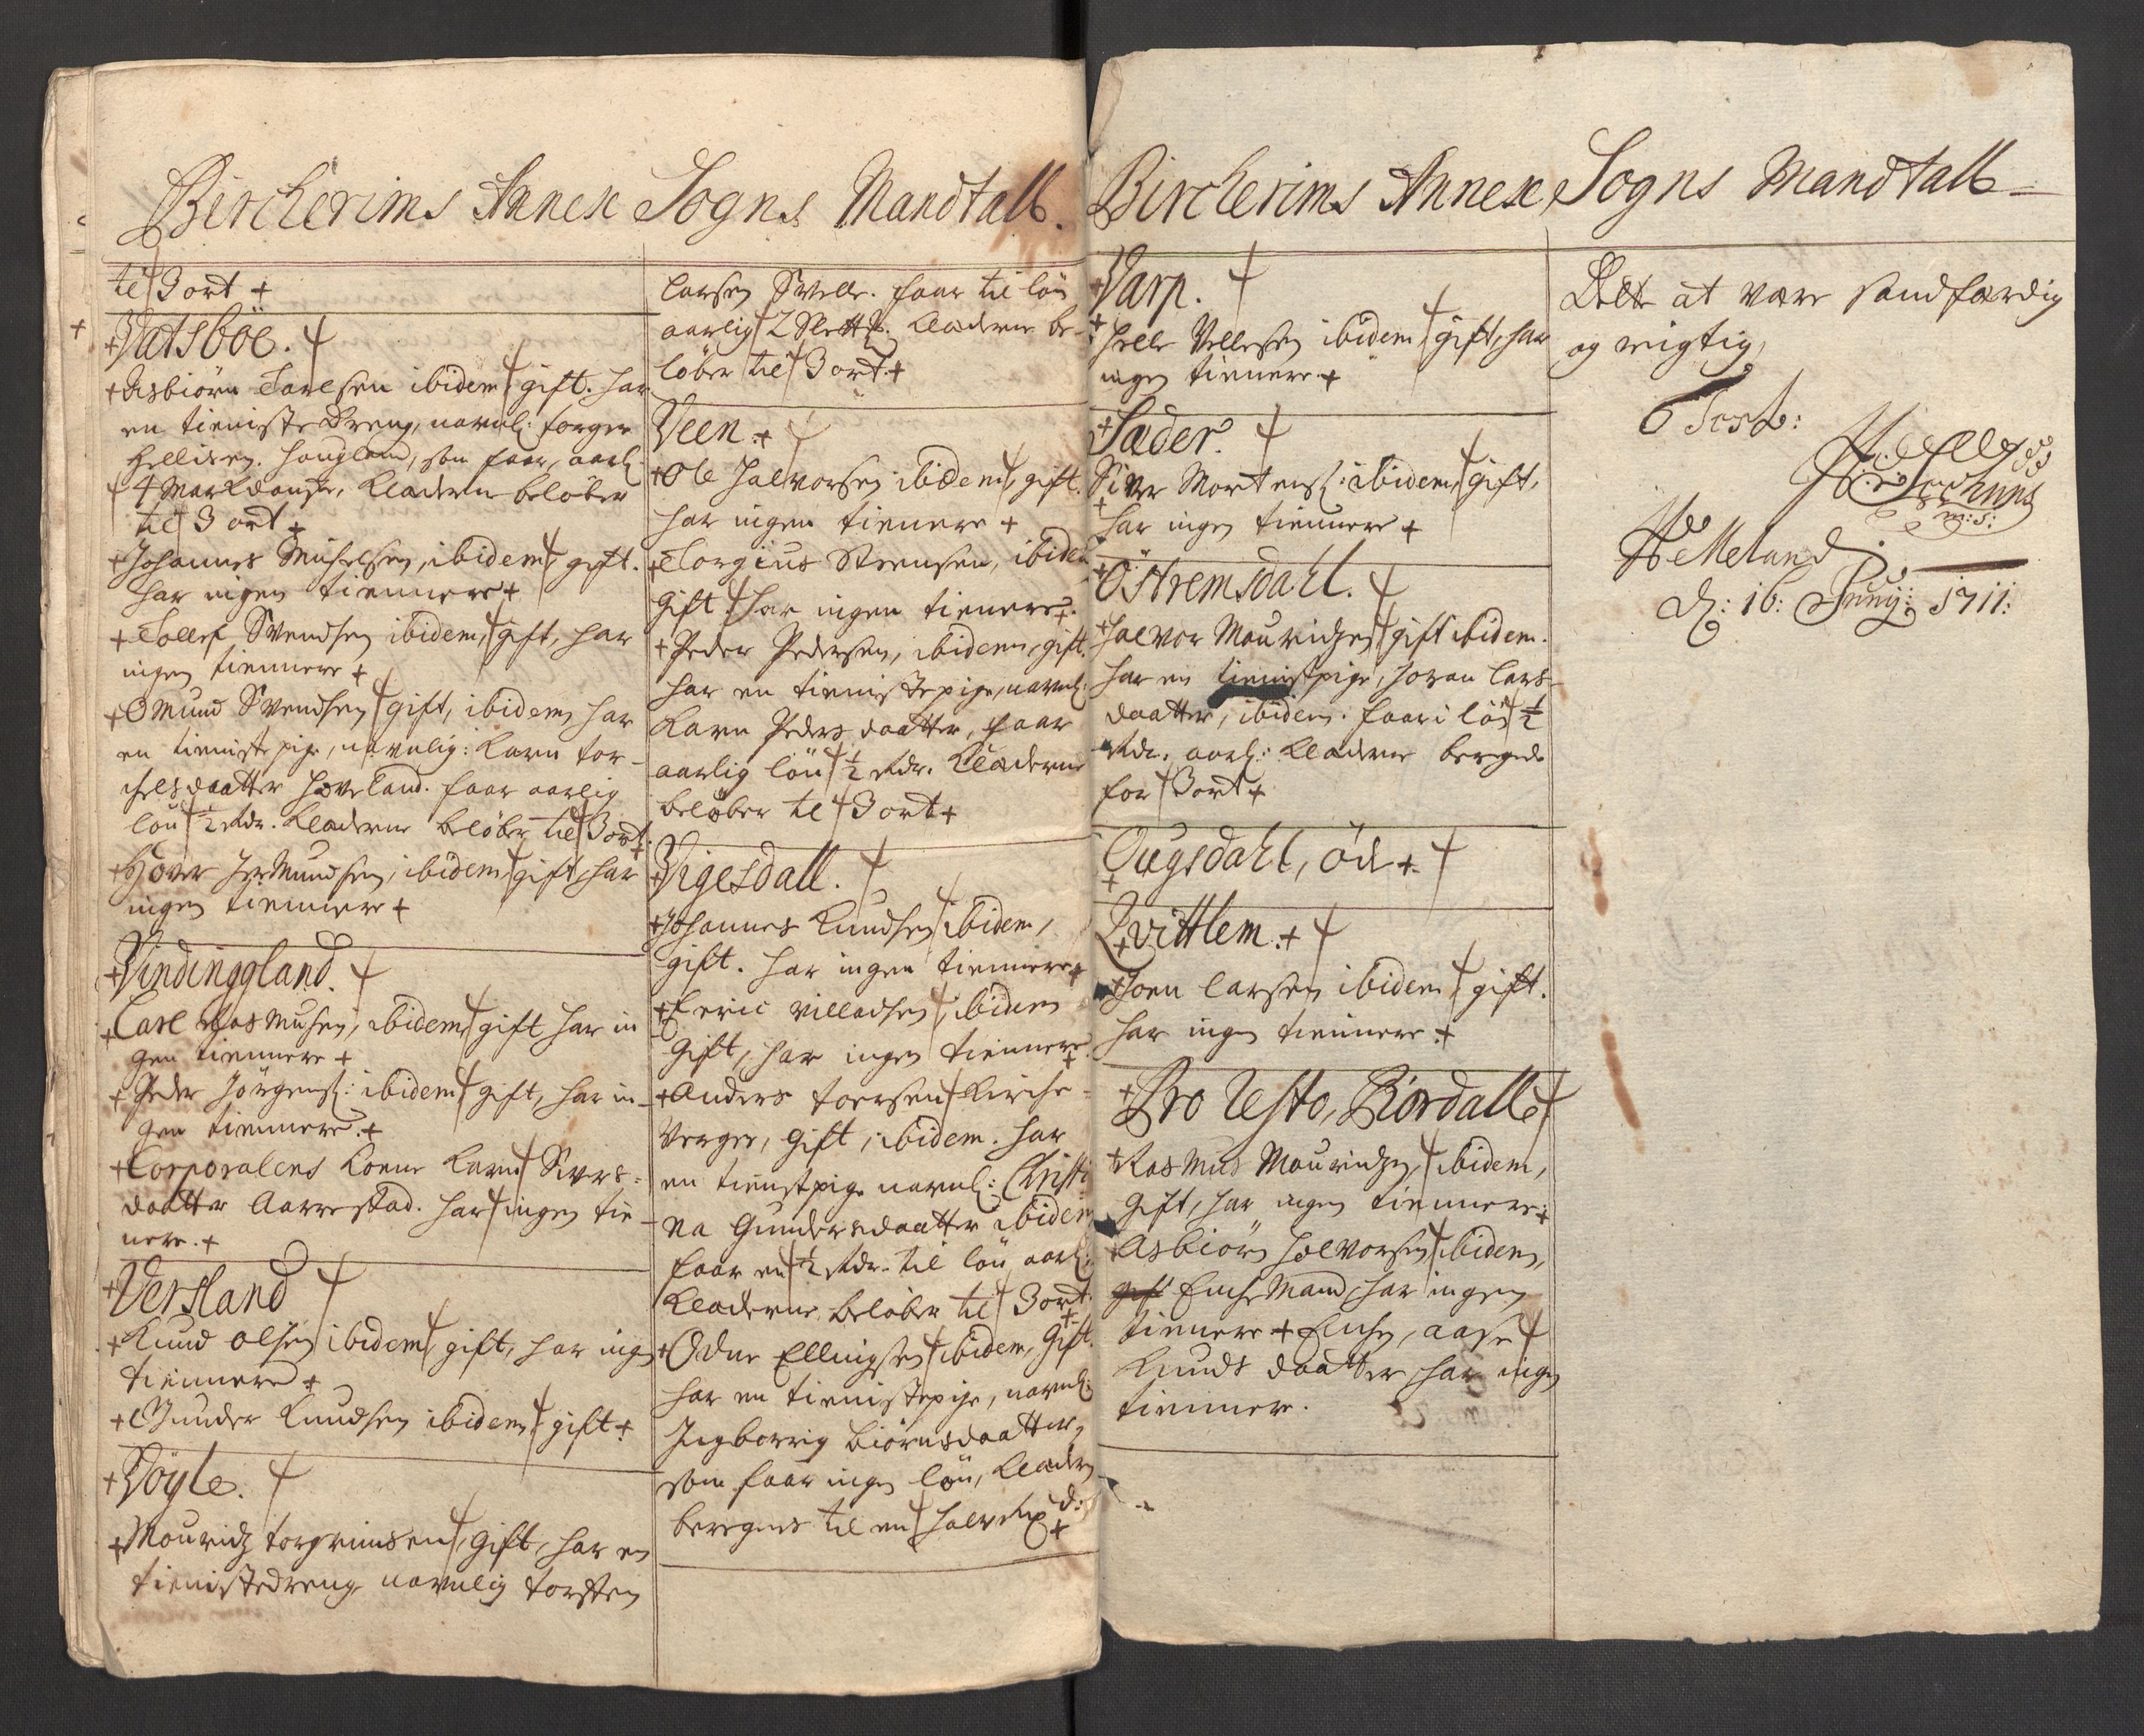 Bircherims Annex Sogns Mandtall.
til 3 ort +
+ Vatsböe.
+ Asbiörn Tarlsen ibidem gift. har
en tieniste dreng, navnl: torger
Hellisen. Haugland, som faar, aarl:
4 Mark danske, Klæderne beløber
til 3 ort +
+ Johannes Michelsen, ibidem, gift.
har ingen tiennere +
+ Tollef Svendsen ibidem, gift, har
ingen tiennere +
+ Omund Svendsen gift, ibidem har
en tieniste pige, navnlig: Karn tor-
chelsdaatter Hoveland. faar aarlig
løn ½ Rdr. Klæderne beløber til 3 ort
+ Giover Jermundsen, ibidem gift har
ingen tiennere +
+ Vindinggland.
+ Carl Rasmusen, ibidem gift har in
gen tiennere +
+ Peder Jörgens: ibidem gift, har in-
gen tiennere. +
+ Corporalens Kone Karn Sivers-
daatter Aarrestad. har ingen tie-
nere. +
+ Versland
+ Knud Olsen ibidem, gift, har ingen
tiennere +
+ Gunder Knudsen ibidem gift +
+ Vöyle.
+ Mouridz torgrimsen, gift, har en
tienistedreng navnlig torsten
larsen Svelle. faar til løn
aarlig 2 Slettd. Klæderne be-
løber til 3 ort. +
Veen. +
+ Ole Halvorsen ibidem, gift.
har ingen tienere +
+ Torgius Stensen, ibidem
Gift. har ingen tienere +.
+ Peder Pedersen, ibidem, gift.
har en tienistepige, navnl.
Karn Peders daatter, faar
aarlig løn ½ Rdr. Klæderne
beløber til 3 ort +
+ Vigesdall.
+ Johannes Knudsen ibidem,
gift. har ingen tiennere +
+ Eric Villadsen, ibidem
Gift, har ingen tiennere
+ Anders toersen Kirche-
Verger, gift, ibidem. har
en tienstpige navnl: Christi
na Gundersdaatter ibidem
faar en ½ Rdr. til løn aarl:
Klæderne beløber til 3 ort.
+ Odne Ellingsen ibidem, Gift.
har en tienistepige, navnl:
Ingborrig Biörnsdaatter,
som faar ingen løn, Klæder
beregnes til en halv Rixd: +
Bircherims Annex Sogns Mandtall-
+ Varp.
+ Helle Vellesen ibidem gift, har
ingen tienere +
+ Sæder.
Siver Mortens: ibidem, gift,
+ har ingen tiennere +
+ Östremsdahl.
+ Halvor Mouridzen gift ibidem.
har en tienistpige, Joran Lars-
daatter, ibidem. faar i løn ½
Rdr. aarl: Klæderne beregnede
for 3 ort +
Ougsdahl, öde +
Qvittlem. +
+ Joen larsen ibidem gift.
har ingen tiennere. +
+ Pro Resto, Rördall
+ Rasmus Mouridzen, ibidem,
gift, har ingen tiennere: +
+ Asbiörn Halvorsen, ibidem,
gift Enchemand, har ingen
tienere + Enchen, aase
Knuds daatter har ingen
tiennere.
Dette at være sandfærdig
og rigtig,
Test:
m:s:
Helleland
d: 16: Junij: 1711: